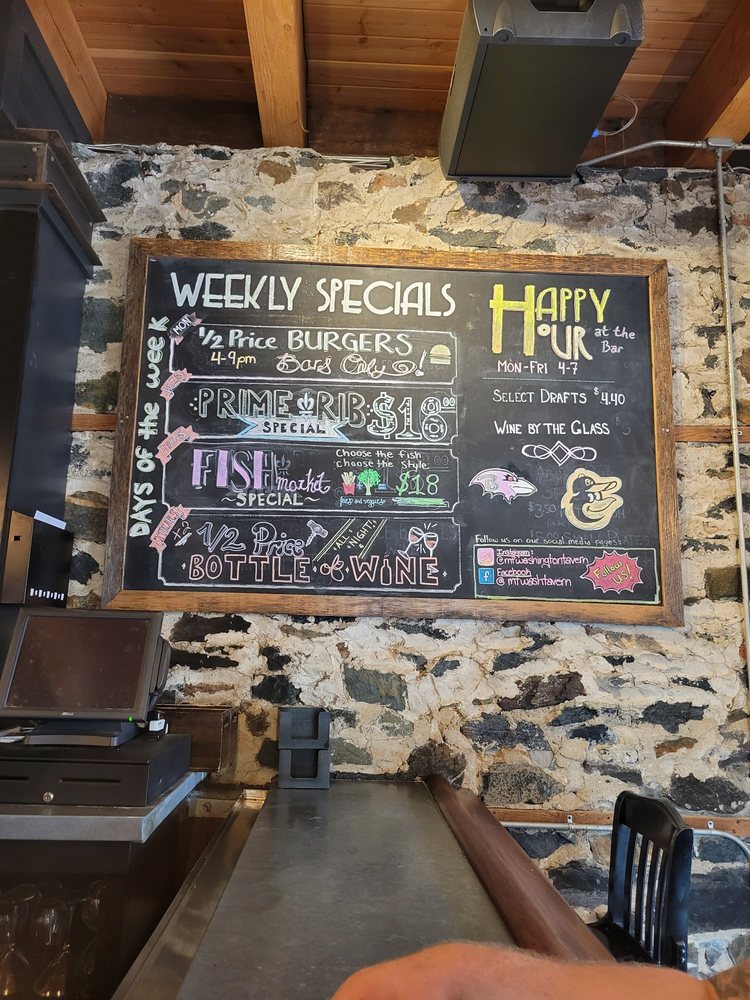 WEEKLY SPECIALS
DAYS OF the week
MON
1/2 Price BURGERS
4-9pm Bars Only!
PRIME RIB $18.00
SPECIAL
FISH market
~SPECIAL~
Choose the fish
choose the style
$18
1/2 Price
ALL NIGHT!
BOTTLE of WINE
HAPPY
HOUR at the
Bar
MON-FRI 4-7
SELECT DRAFTS $4.40
WINE BY THE GLASS
Follow us on our social media pages!
Instagram:
@mtwashingtontavern
Facebook
@mtwashtavern
Follow US!